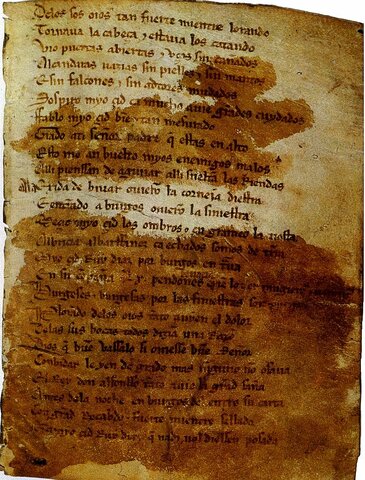 Delos sos oios tan fuerte mientre lorando
Tornaua la cabeça ⁊ estaua los catando
Vio puertas abiertas ⁊ vços sin cañados
Alcandaras uazias sin pielles ⁊ sin mantos
E sin falcones ⁊ sin adtores mudados
Sospiro myo çid ca mucho auie grãdes cuydados
Fablo myo çid bien ⁊ tan mesurado
Grado ati señor padre q̃ estas en alto
Esto me an buelto myos enemigos malos
Alli pienssan de aguijar alli sueltã las Riendas
Ala exida de biuar ouierõ la corneja diestra
E entrãdo a burgos ouierõ la siniestra
Meçio myo çid los ombros ⁊ en grameo la tiesta
Albricia albarffanez ca echados somos de tr̃ra
Myo çid Ruy diaz por burgos en traua
En su conpaña .Lx. pendones
Burgeses ⁊ burgesas por las finiestras son
Plorando delos oios tãto auyen el dolor
Delas sus bocas todos dizian una Razõ
Dios q̃ buẽ vassalo si ouiesse buẽ Señor
Conbidar le yen de grado mas ninguno no osaua
El Rey don alfonsso tãto auie la grãd saña
Antes dela noche en burgos del entro su carta
Con grãd Recabdo ⁊ fuerte mientre sellada
Que a myo çid Ruy diaz q̃ nadi nol diessen posada